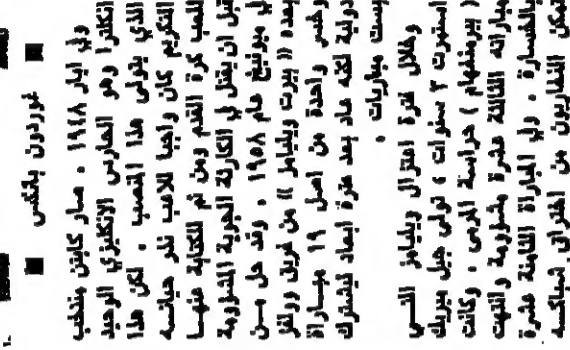 ■ غوردون بانكس ■
وفي ايار ١٩٤٨ ، صار كابتن منتخب
انكلترا وهو الحارس الانكليزي الوحيد
الذي يتولى هذا المنصب . لكن هذا
التكريم كان واهبا للاعب نذر حياته
للعب كرة القدم ومن ثم للكتابة عنها
قبل ان يقتل في الكارثة الجوية المشؤومة
في ميونيخ عام ١٩٥٨ . وقد حل من
بعده « بيرت ويليامز » من فريق وولفز
وخسر واحدة من اصل ١٩ مباراة
دولية لكنه عاد بعد فترة ابعاد ليشترك
بست مباريات .
وخلال فترة اعتزال ويليامز التي
استمرت ٣ سنوات ، تولى جيل ميريك
( بيرمنغهام ) حراسة المرمى . وكانت
مباراته الثالثة عشرة مشؤومة وانتهت
بالخسارة . وفي المباراة الثامنة عشرة
تمكن الهنغاريون من اختراق شباكه